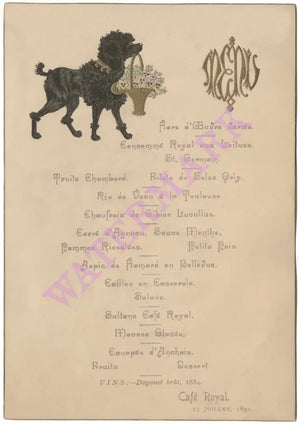 MENU
Hors d'Œuvre Variés.
Consommé Royal aux Laitues.
St. Germain.
Truite Chambord. Filets de Soles Orly.
Ris de Veau à la Toulouse
Chaufroix de Gibier Lucullus.
Carré d'Agneau, Sauce Menthe.
Pommes Rissolées. Petits Pois.
Aspic de Homard en Bellevue.
Cailles en Casserole.
Salade.
Sultane Café Royal.
Mousse Glacée.
Canapés d'Anchois.
Fruits Dessert
VINS:—Dagonet brût, 1884.
Café Royal.
12 JUILLET, 1891.
WATERMARK